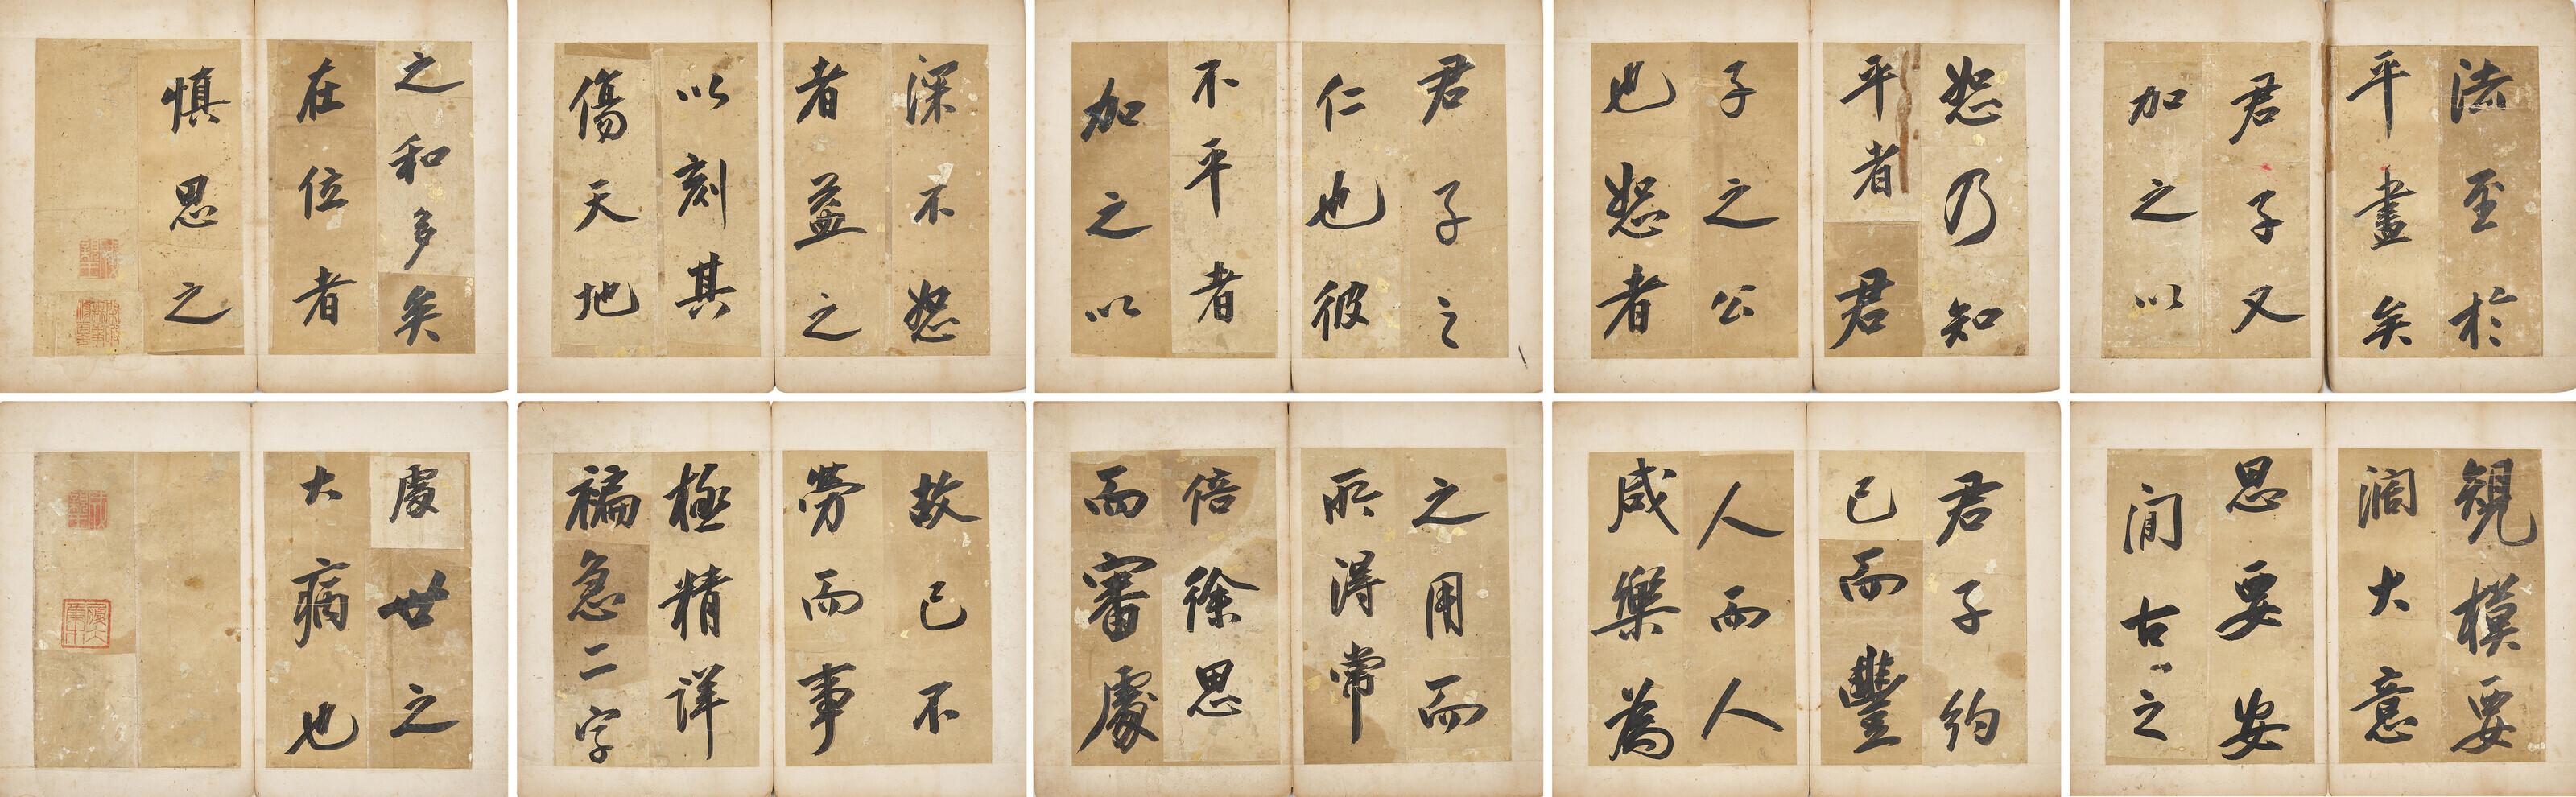 法至於
平盡矣
君子又
加之以
恕乃知
平者君
子之公
也恕者
君子之
仁也彼
不平者
加之以
深不恕
者益之
以刻其
傷天地
之和多矣
在位者
慎思之
規模要
濶大意
思要安
閒古之
君子約
己而豐
人而人
咸樂為
之用而
所得常
倍徐思
而審處
故己不
勞而事
極精詳
褊急二字
處世之
大病也